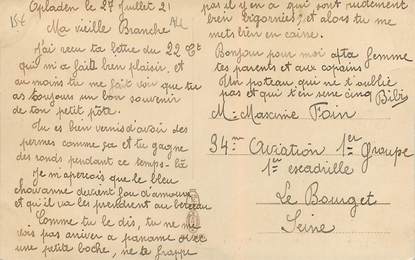 15€
Opladen le 27 Juillet 21
Ma vieille Branche
J'ai reçu ta lettre du 22 Ct
qui m'a fait bien plaisir, et
au moins tu me fait voir que tu
as toujours un bon souvenir
de ton petit pôte.
Tu es bien verni d'avoir des
permes comme ça et tu gagne
des ronds pendant ce temps-là
Je m'aperçois que le bleu
devient fou d'amour
et qu'il va les prendre au
Comme tu le dis, tu ne me
vois pas arriver à paname avec
une petite boche, ne te frappe
pas il y en a qui sont rudement
bien bigornies, et alors tu me
mets bien en caine.
Bonjour pour moi à ta femme
tes parents et aux copains
Ton poteau qui ne t'oublie
pas et qui t'en serre cinq Bibi
Mr Maxime Fain
34me Aviation 1er groupe
1er escadrille
Le Bourget
Seine